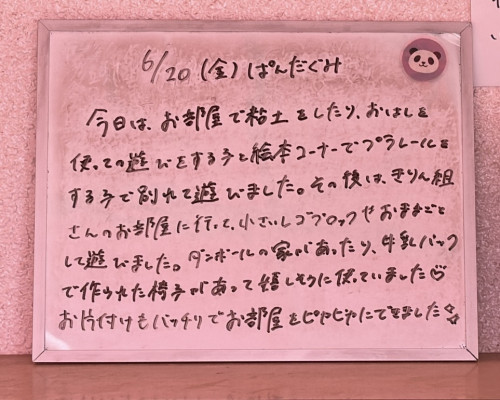 6/20(金)ぱんだぐみ
今日は、お部屋で粘土をしたり、おはしを
使っての遊びをする子と絵本コーナーでプラレールを
する子で別れて遊びました。その後は、きりん組
さんのお部屋に行って、小さいレゴブロックやおままごと
して遊びました。ダンボールの家があったり、牛乳パック
で作られた椅子があって嬉しそうに使っていました♡
お片付けもバッチリでお部屋をピカピカにできました☆